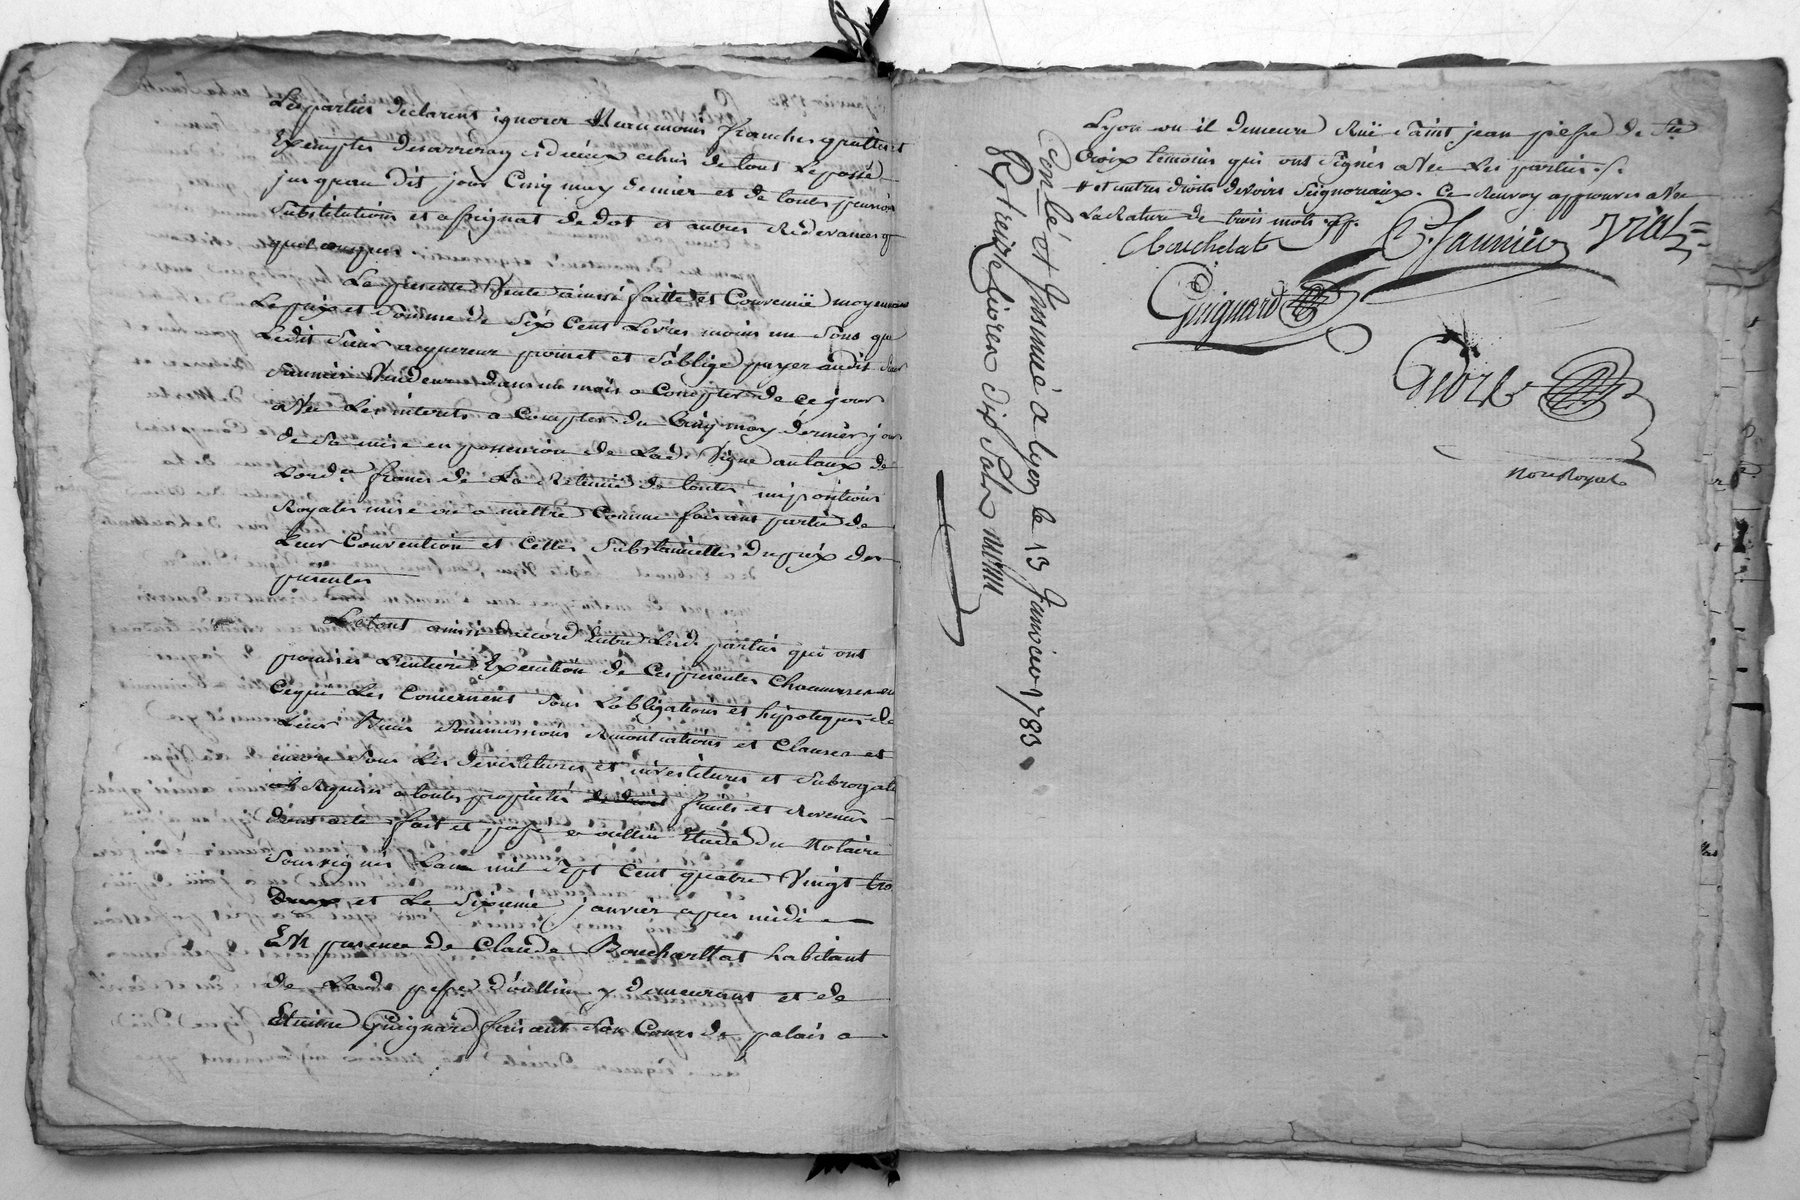 Les parties declarent ignorer Neanmoins franches quittes et
Exemptes desarrerages d'iceux echus de tout Lepassé
jusquau dit jour Cinq may dernier et de toutes pension
Substitutions et assignat de dot et autres Redevances q
quelconques
La presente Vente ainsi faitte et Convenüe moyennant
Le prix et Somme de Six Cent Livres moins un Sous que
Ledit Sieur acquereur promet et S'oblige payer audit Sieur
Saunier Vendeur dans un mois a Compter de ce jour
avec Les interets a Compter du Cinq may dernier jour
de Sa mise en possession de Lad. Vigne au taux de
Lord.ce francs de La Retenüe de toutes impositions
Royales mise ou a mettre Comme faisant partie de
Leur Convention et Cettes Substantielles du prix des
presentes
Letout ainsi daccord Entre Lesd. parties qui ont
promises Lentiere Execution de Ces presentes Chacunes en
Ceque Les Concernent Sous Lobligations et hipoteques de
Leurs Biens Soumissions Renontiations et Clauses et
encore Sous Les devestitures et investitures et Subrogats
Requises a toutes proprietés fruits et Revenus
dont acte fait et passé a oullin Etude du Notaire
Soussignés Lan mil Sept Cent quatre Vingt tro
Deux et Le Sixieme janvier apres midi
EN presence de Claude Boucharllat habitant
de Lad. psse d'oullin y demeurant et de
Etienne Guignard faisant Son Cours de palais a
Lyon ou il demeure Rüe Saint jean psse de Ste
Croix temoins qui ont Signés avec Les parties /.
# et autres droits devoirs Seigneuriaux. Ce Renvoy approuvés avec
La Rature de trois mots
Bouchelat C. Saunier Vial
Guignard
George
Not. Royal
Con.lé et Insinué a lyon le 13 Janvier 1783
R. treize livres dix Sols